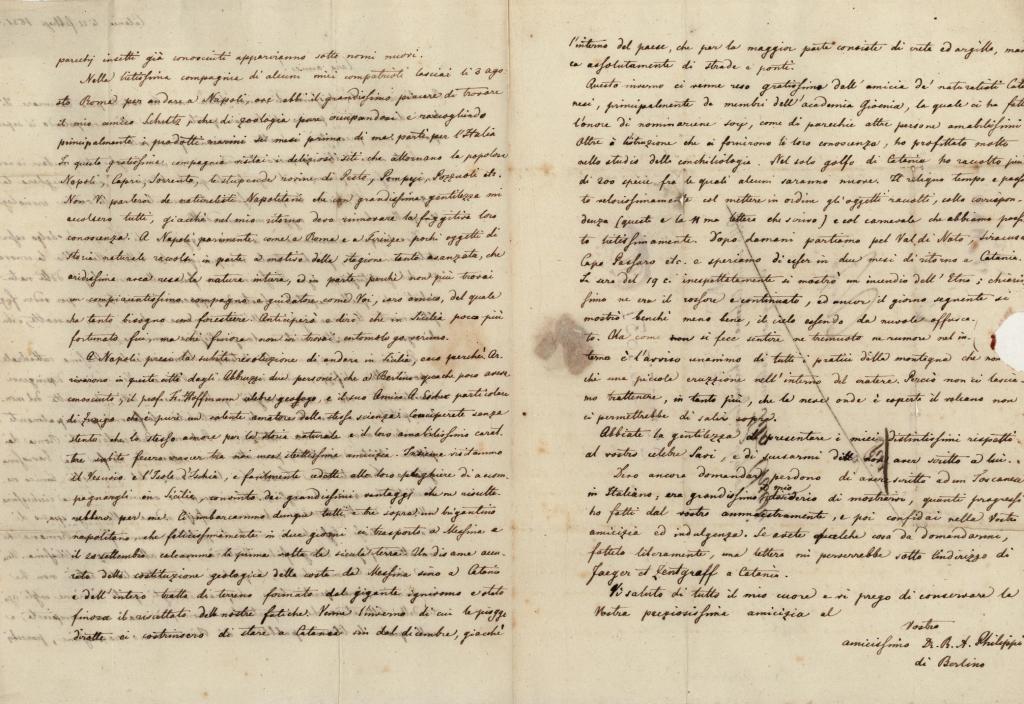 parecchj insetti già conosciuti appariranno sotto nomi nuovi.
Nella lietissima compagnia di alcuni miei compatrioti lasciai li 3 ago
sto Roma per andare a Napoli, ove ebbi il grandissimo piacere di trovare
il mio amico Schultz, che di zoologia pare occupandosi e raccogliendo
principalmente i prodotti marini sei mesi prima di me partì per l'Italia
In questa gratissima compagnia visitai i deliziosi siti che attornano la popolosa
Napoli, Capri, Sorrento, le stupende rovine di Pesto, Pompeji, Pozzuoli etc.
Non Vi parlerò de naturalisti Napolitani che con grandissima gentilezza mi
accolsero tutti, giacchè nel mio ritorno devo rinnovare la fuggitiva loro
conoscenza. A Napoli parimente come a Roma e a Firenze pochi oggetti di
storia naturale raccolsi in parte a motivo della stagione tanto avanzata, che
aridissima avea resa la natura intera, ed in parte perchè non più trovai
un compiacentissimo compagno e guidatore come Voi, caro amico, del quale
ha tanto bisogno un forestiere. Anticiperò e dirò che in Sicilia poco più
fortunato fui, ma che finora non vi trovai entomologo verúno.
A Napoli presi la subita risoluzione di andare in Sicilia, ecco perchè. Ar
rivarono in questa città dagli Abbruzzi due persone che a Berlino quache poco avea
conosciute, il prof. Fr. Hoffmann celebre geologo, e il suo Amico A. Escher particolare
di Zurigo che è pure un valente amatore della stessa scienza. Concepirete senza
stento che lo stesso amore per la storia naturale e il loro amabilissimo carat
tere subito fecero nascer tra noi una strettissima amicizia. Insieme visitammo
il Vesuvio e l'Isola d'Ischia, e facilmente cedetti alle loro preghiere di accom
pagnargli in Sicilia, convinto dai grandissimi vantaggi che ne risulte
rebbero per me. Ci imbarcammo dunque tutti e tre sopra un bigantino
napolitano, che felicissimamente in due giorni ci trasportò a Messina e
il 20 settembre calcammo la prima volta la sicula terra. Un disame accu
rato della costituzione geologica della costa da Messina sino a Catania
e dell'intero tratto di terreno formato dal gigante ignivomo è stato
finora il risultato delle nostre fatiche. Venne l'inverno di cui le piogge
dirotte ci costrinsero di stare a Catania sin dal dicembre, giacchè
l'interno del paese, che per la maggior parte consiste di creta ed argilla, man
ca assolutamente di strade e ponti.
Questo inverno ci venne reso gratissimo dall'amicizia de' naturalisti Cata
nesi, principalmente de' membri dell'Accademia Gioenia, la quale ci ha fatto
l'onore di nominarcene socj, come di parecchie altre persone amabilissimi
Oltre a l'istruzione che ci fornirono le loro conoscenza, ho profittato molto
nello studio della conchiliologia. Nel solo golfo di Catania ho raccolto più
di 200 specie fra le quali alcuni saranno nuove. Il religuo tempo è passa
to velocissimamente col mettere in ordine gli oggetti raccolti, colla correspon
denza (questa è la 11 ma lettera che scrivo) e col carnevale che abbiamo passa
to lietissimamente. Dopo domani partiamo pel Val di Noto, Siracusa
Capo Passaro etc. e speriamo di esser in due mesi di ritorno a Catania.
La sera del 19 c. inaspettatamente si mostrò un incendio dell'Etna; chiaris
simo ne era il rossore e continuato, ed ancor il giorno seguente si
mostrò benchè meno bene, il cielo essendo da nuvole offusca
to. Ma come non si fece sentire ne tremuoto ne rumore nel in
terno è l'avviso unanimo di tutti i pratici della montagna che non
chi una piccola eruzzione nell'interno del cratere. Perciò non ci lascia
mo trattenere, in tanto più, che la neve onde è coperto il volcano non
ci permetterebbe di salir sopra.
Abbiate la gentilezza di presentare i miei distintissimi rispetti
al vostro celebre Savi, e di scusarmi di non aver scritto a lui.
Devo ancora domandar perdono di avere scritto ad un Toscano
in Italiano, era grandissimo mio desiderio di mostrarvi, quanti progressi
ho fatti dal vostro ammaestramente, e poi confidai nella Vostra
amicizia ed indulgenza. Se avete qualche cosa da domandarmi,
fatelo liberamente, una lettera mi perverrebbe sotto l'indirizzo di
Jaeger et Zentgraff a Catania.
Vi saluto di tutto il mio cuore e vi prego di conservare la
Vostra preziosissima amicizia al
Vostro
amicissimo Dr. R. A. Philippi
di Berlino